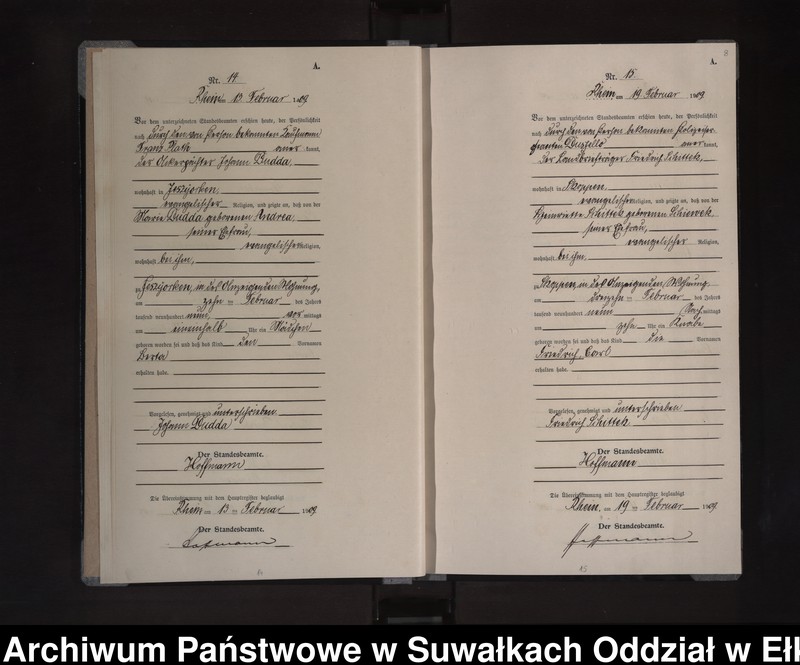 A.
Nr. 14
Rhein am 13 Februar 1909
Vor dem unterzeichneten Standesbeamten erschien heute, der Persönlichkeit
nach durch den von Person bekannten Kaufmann
Franz aner kannt,
der Ackerpächter Johann Dudda,
wohnhaft in Jesziorken
evangelischer Religion, und zeigte an, daß von der
Marie Dudda geborenen Andrea,
seiner Ehefrau,
evangelischer Religion,
wohnhaft bei ihm,
in Jesziorken, in des Anzeigenden Wohnung,
am zehn ten Februar des Jahres
tausend neunhundert neun, vor mittags
um einenhalb Uhr ein Mädchen
geboren worden sei und daß das Kind den Vornamen
Berta
erhalten habe.
Vorgelesen, genehmigt und unterschrieben
Johann Dudda
Der Standesbeamte.
Hoffmann
Die Übereinstimmung mit dem Hauptregister beglaubigt
Rhein am 13 ten Februar 1909
Der Standesbeamte.
Hoffmann
14
8
A.
Nr. 15
Rhein, am 19 Februar 1909
Vor dem unterzeichneten Standesbeamten erschien heute, der Persönlichkeit
nach durch den von Person bekannten Polizeiser-
geanten aner kannt,
der Landbriefträger Friedrich Schittek,
wohnhaft in Skoppen,
evangelischer Religion, und zeigte an, daß von der
Henriette Schittek geborenen
seiner Ehefrau,
evangelischer Religion,
wohnhaft bei ihm,
in Skoppen, in des Anzeigenden Wohnung,
am dreizehn ten Februar des Jahres
tausend neunhundert neun Nach mittags
um zehn Uhr ein Knabe
geboren worden sei und daß das Kind die Vornamen
Friedrich Carl
erhalten habe.
Vorgelesen, genehmigt und unterschrieben
Friedrich Schittek
Der Standesbeamte.
Hoffmann
Die Übereinstimmung mit dem Hauptregister beglaubigt
Rhein, am 19 ten Februar 1909.
Der Standesbeamte.
Hoffmann
15
Archiwum Państwowe w Suwałkach Oddział w Ełk